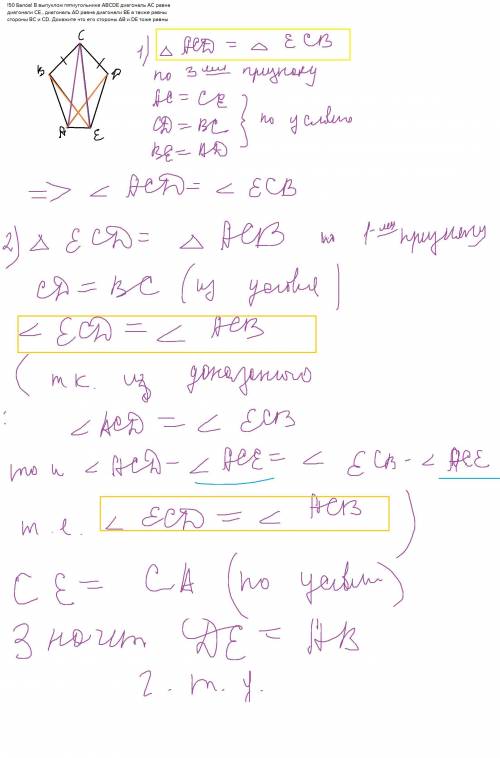 !50 Баллов! В выпуклом пятиугольнике ABCDE диагональ AC равна
диагонали CE , диагональ AD равна диагонали BE а также равны
стороны BC и CD. Докажите что его стороны AB и DE тоже равны
C
B
D
A
E
1) △ ACD = △ ECB
по 3 му признаку
AC = CE
CD = BC } по условию
BE = AD
=> ∠ ACD = ∠ ECB
2) △ ECD = △ ACB по 1-му признаку
CD = BC (из условия)
∠ ECD = ∠ ACB
(т.к. из доказанного
:
∠ ACD = ∠ ECB
то и ∠ ACD - ∠ ACE = ∠ ECB - ∠ ACE
т.е. ∠ ECD = ∠ ACB )
CE = CA (по условию)
Значит DE = AB
ч.т.д.